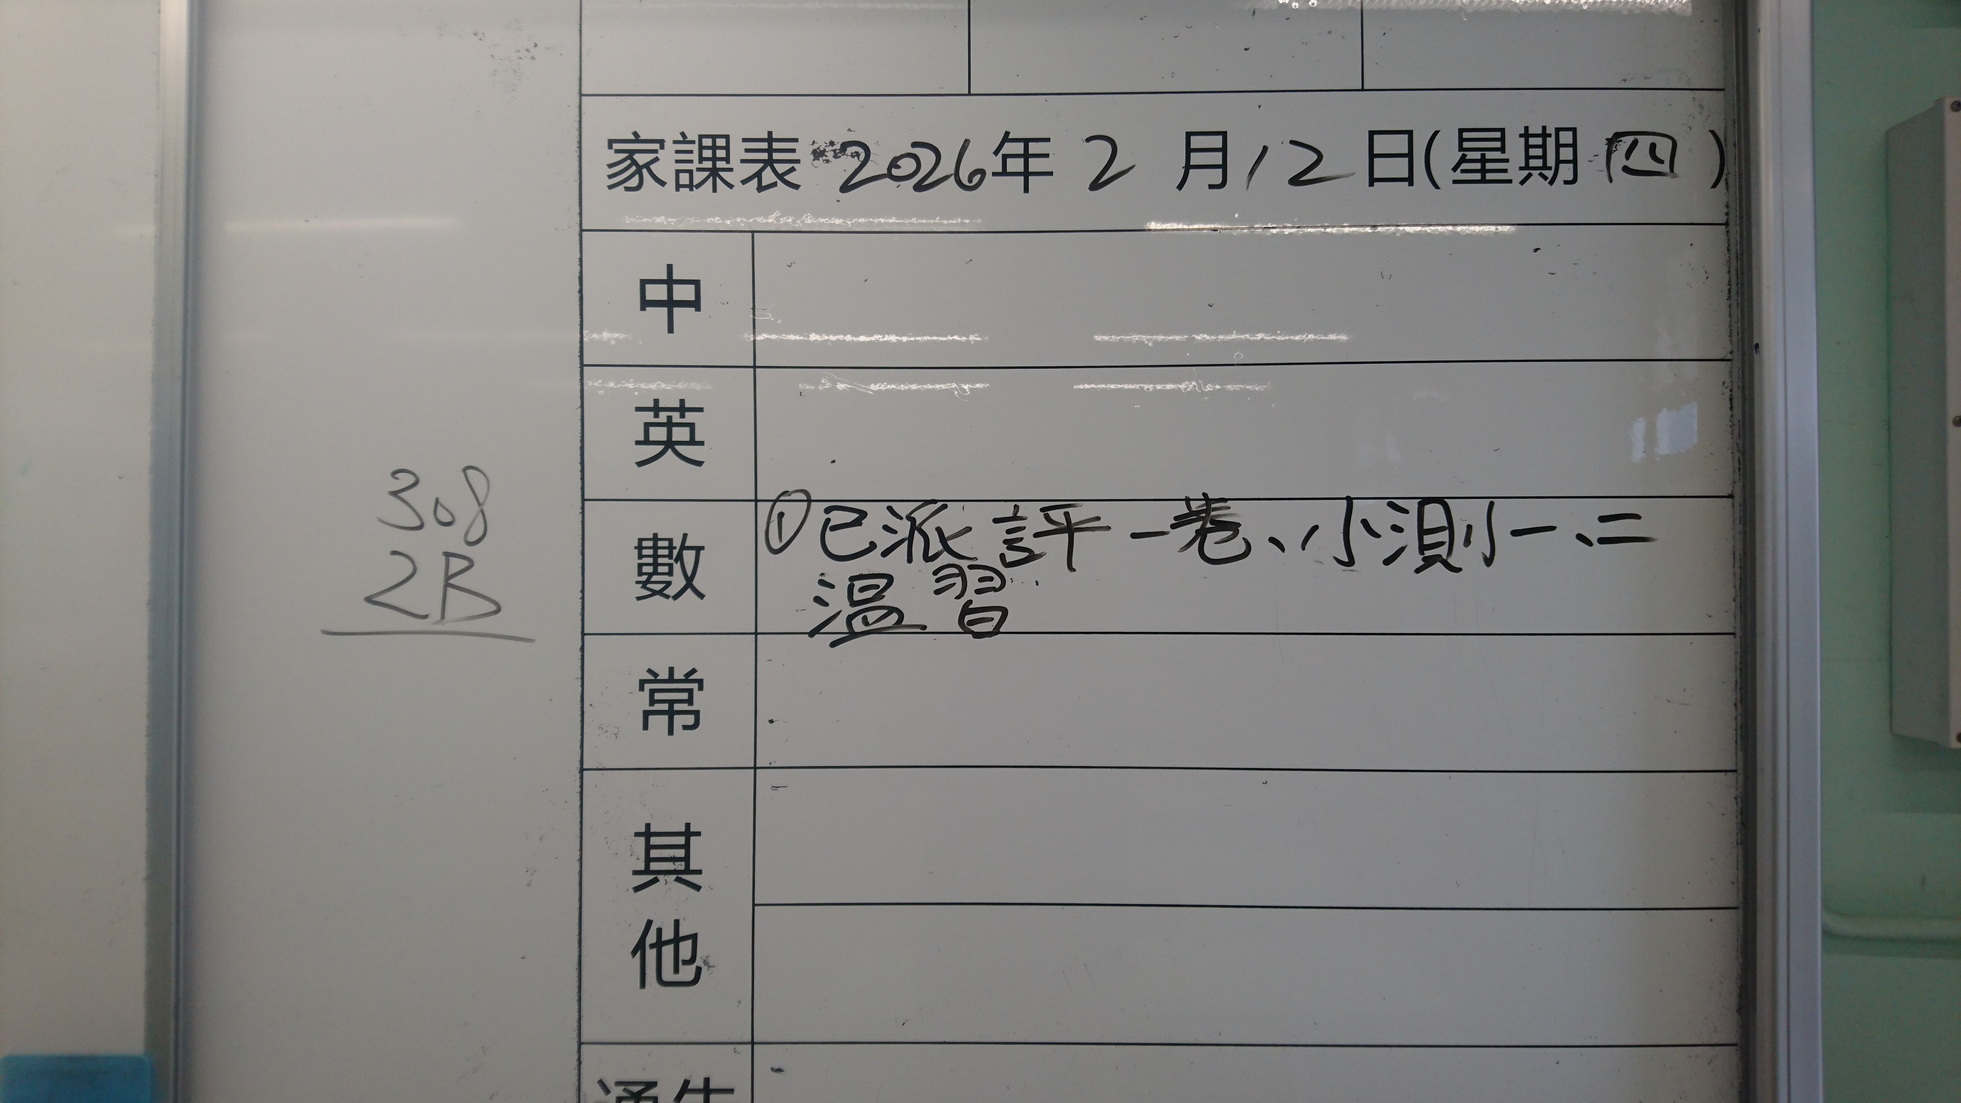 家課表 2026年 2 月 12 日(星期 四 )
中
英
308
2B
數
① 已派評一卷、小測一、二
溫習
常
其
他
通告